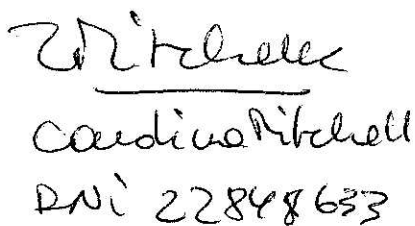 Mitchell
Carolina Mitchell
DNi 22848633